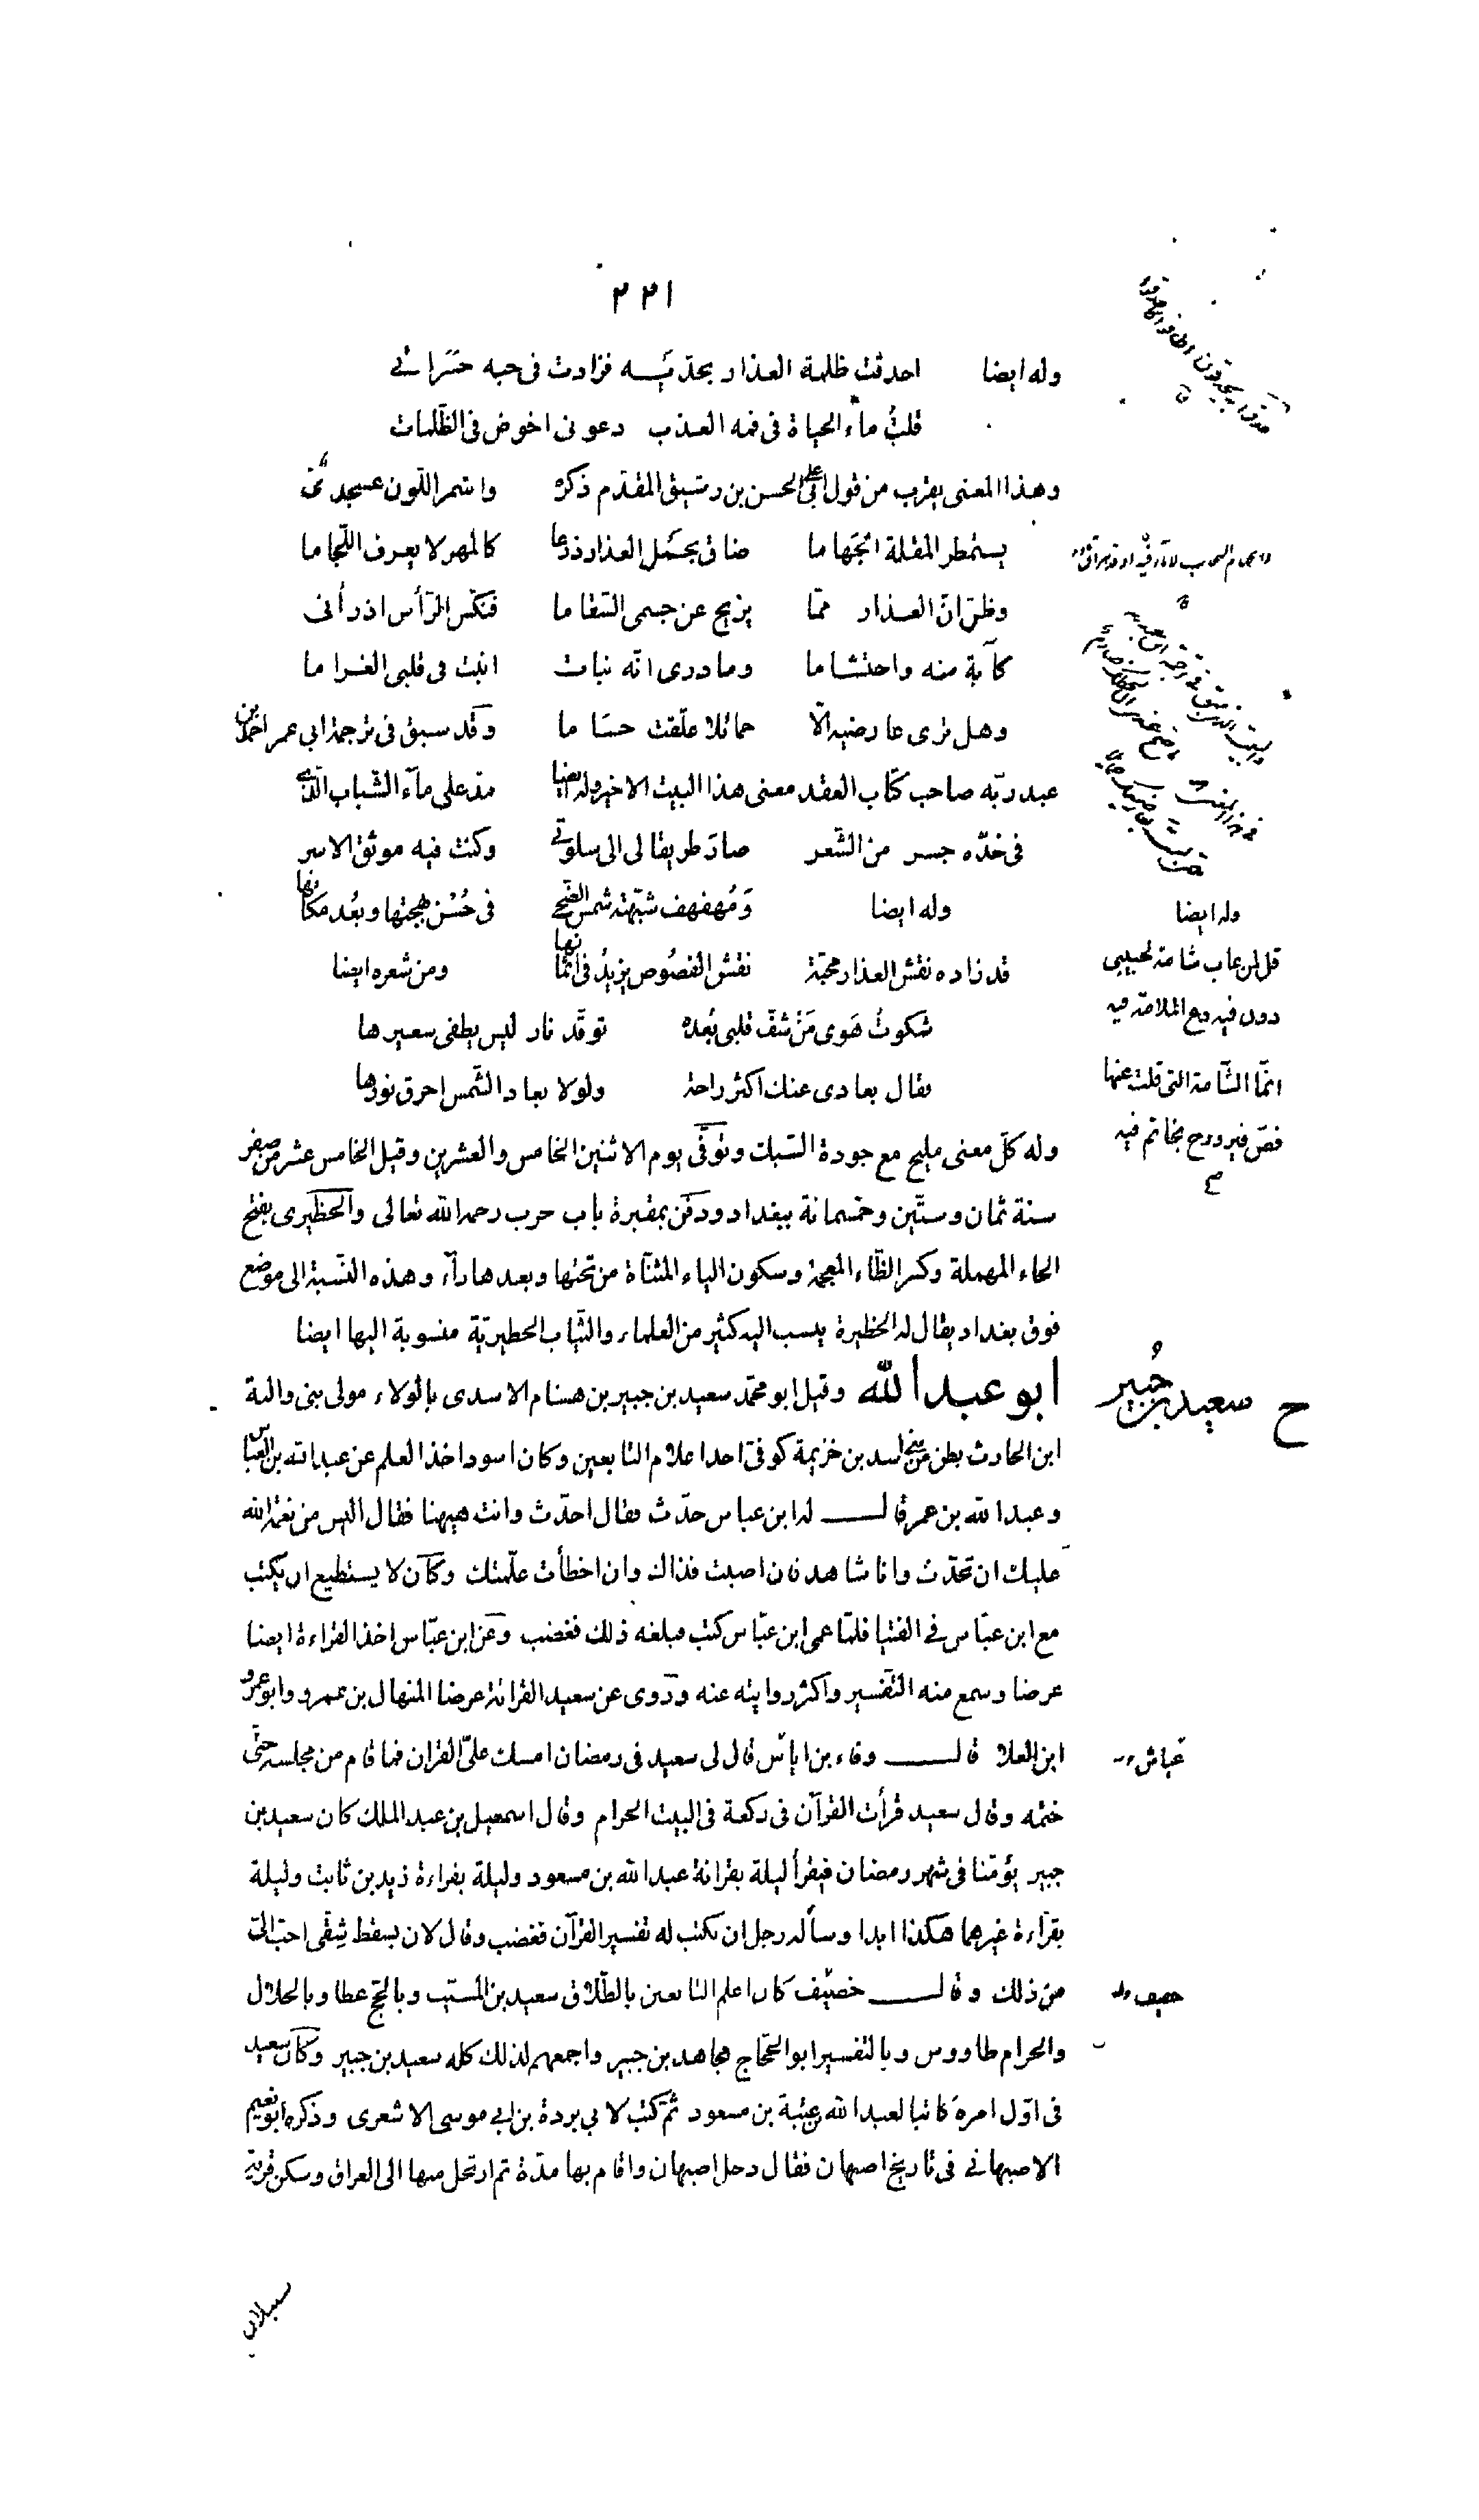 ٢٢١
وله ايضا احدقت ظلمة العذار بخدّيه فزادت فى حبه حسراتى
قلت ماء الحياة فى فمه العذب دعونى اخوض فى الظّلمات
وهذا المعنى يقرب من قول ابى على الحسن بن رشيق المقدّم ذكره واسمر اللّون عسجدىّ
يستمطر المقلة الجهاما ضاق بحمل العذار ذرعا كالمهر لا يعرف اللّجاما
وظنّ انّ العذار ممّا يزيح عن جسمى السّقاما فنكّس الرّأس اذ رأنى
كآبة منه واحتشاما وما درى انّه نبات انبت فى قلبى الغراما
وهل ترى عارضيه الّا حمائلا علّقت حساما وقد سبق فى ترجمة ابى عمر احمد بن
عبد ربّه صاحب كتاب العقد معنى هذا البيت الاخير وله ايضا مدّ على مآء الشّباب الّذى
فى خدّه جسر من الشّعر صار طريقا لى الى سلوتى وكنت فيه موثق الاسر
وله ايضا وَمُهفهف شبّهته شمس الضّحى فى حُسْن بهجتها وبُعد مكانها
قد زاده نقش العذار محبّة نقش الفصُوص يزيدُ فى اثمانها ومن شعره ايضا
شكوتُ هَوى مَنْ شفّ قلبى بُعدُه توقّد نار ليس يطفى سعيرها
فقال بعادى عنك اكثر راحة ولولا بعاد الشّمس احرق نورها
وله كلّ معنى مليح مع جودة السّبك وتوفّى يوم الاثنين الخامس والعشرين وقيل الخامس عشر من صفر
سنة ثمان وستّين وخمسمائة ببغداد ودفن بمقبرة باب حرب رحمه الله تعالى والحظيرى بفتح
الحاء المهملة وكسر الظّاء المعجمة وسكون الياء المثنّاة من تحتها وبعدها رآء وهذه النّسبة الى موضع
فوق بغداد يقال له الحظيرة ينسب اليه كثير من العلماء والثّياب الحظيريّة منسوبة اليها ايضا
ابو عبد الله وقيل ابو محمّد سعيد بن جبير بن هشام الاسدى بالولاء مولى بنى والبة
ابن الحارث بطن من بنى اسد بن خزيمة كوفى احد اعلام التابعين وكان اسود اخذ العلم عن عبد الله بن العبّاس
وعبد الله بن عمر قال له ابن عباس حدّث فقال احدّث وانت هيهنا فقال اليس من نعمة الله
عليك ان تحدّث وانا شاهد فان اصبت فذاك وان اخطأت علّمتك وكان لا يستطيع ان يكتب
مع ابن عبّاس فى الفتيا فلمّا عمى ابن عبّاس كتب فبلغه ذلك فغضب وعن ابن عبّاس اخذ القراءة ايضا
عرضا وسمع منه التّفسير واكثر روايته عنه وروى عن سعيد القرائة عرضا المنهال بن عمرو وابو عمرو
ابن العلا قال وفاء بن اياس قال لى سعيد فى رمضان امسك علىّ القران فما قام من مجلسه حتّى
ختمه وقال سعيد قرأت القرآن فى ركعة فى البيت الحرام وقال اسمعيل بن عبد الملك كان سعيد بن
جبير يؤمّنا فى شهر رمضان فيقرأ ليلة بقرائة عبد الله بن مسعود وليلة بقراءة زيد بن ثابت وليلة
بقرآءة غيرهما هكذا ابدا وسأله رجل ان يكتب له تفسير القرآن فغضب وقال لان يسقط شِقّى احبّ الىّ
من ذلك وقال خصيف كان اعلم التابعين بالطّلاق سعيد بن المسيّب وبالحجّ عطا وبالحلال
والحرام طاووس وبالتفسير ابو الحجّاج مجاهد بن جبير واجمعهم لذلك كله سعيد بن جبير وكان سعيد
فى اوّل امره كاتبا لعبد الله بن عتبة بن مسعود ثمّ كتب لابى بردة بن ابى موسى الاشعرى وذكره ابو نعيم
الاصبهانى فى تاريخ اصبهان فقال دخل اصبهان واقام بها مدّة ثم ارتحل منها الى العراق وسكن قرية
سنبلان
وله ايضا
قل لمن عاب شامة لحبيبى
دون فيه دع الملامة فيه
انّما الشّامة التى قلت عنها
فصّ فيروزج بخاتم فيه
ح سعيد بن جُبير
عياش
خصيف